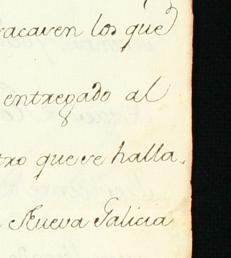 acaven los que
entregado al
tro que se halla.
Nueva Galicia